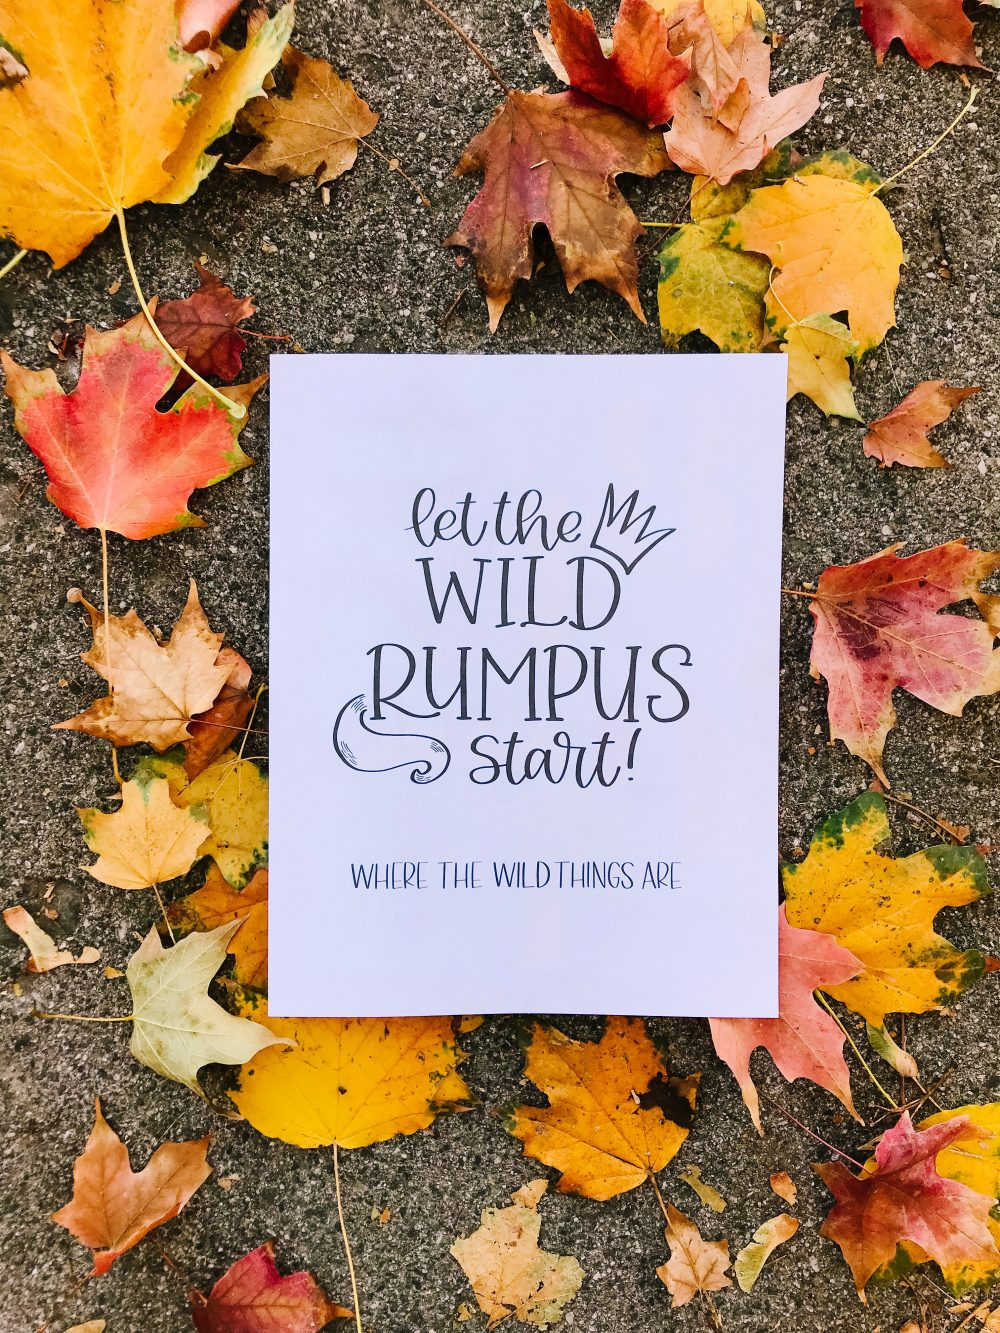 let the
WILD
RUMPUS
start!
WHERE THE WILD THINGS ARE